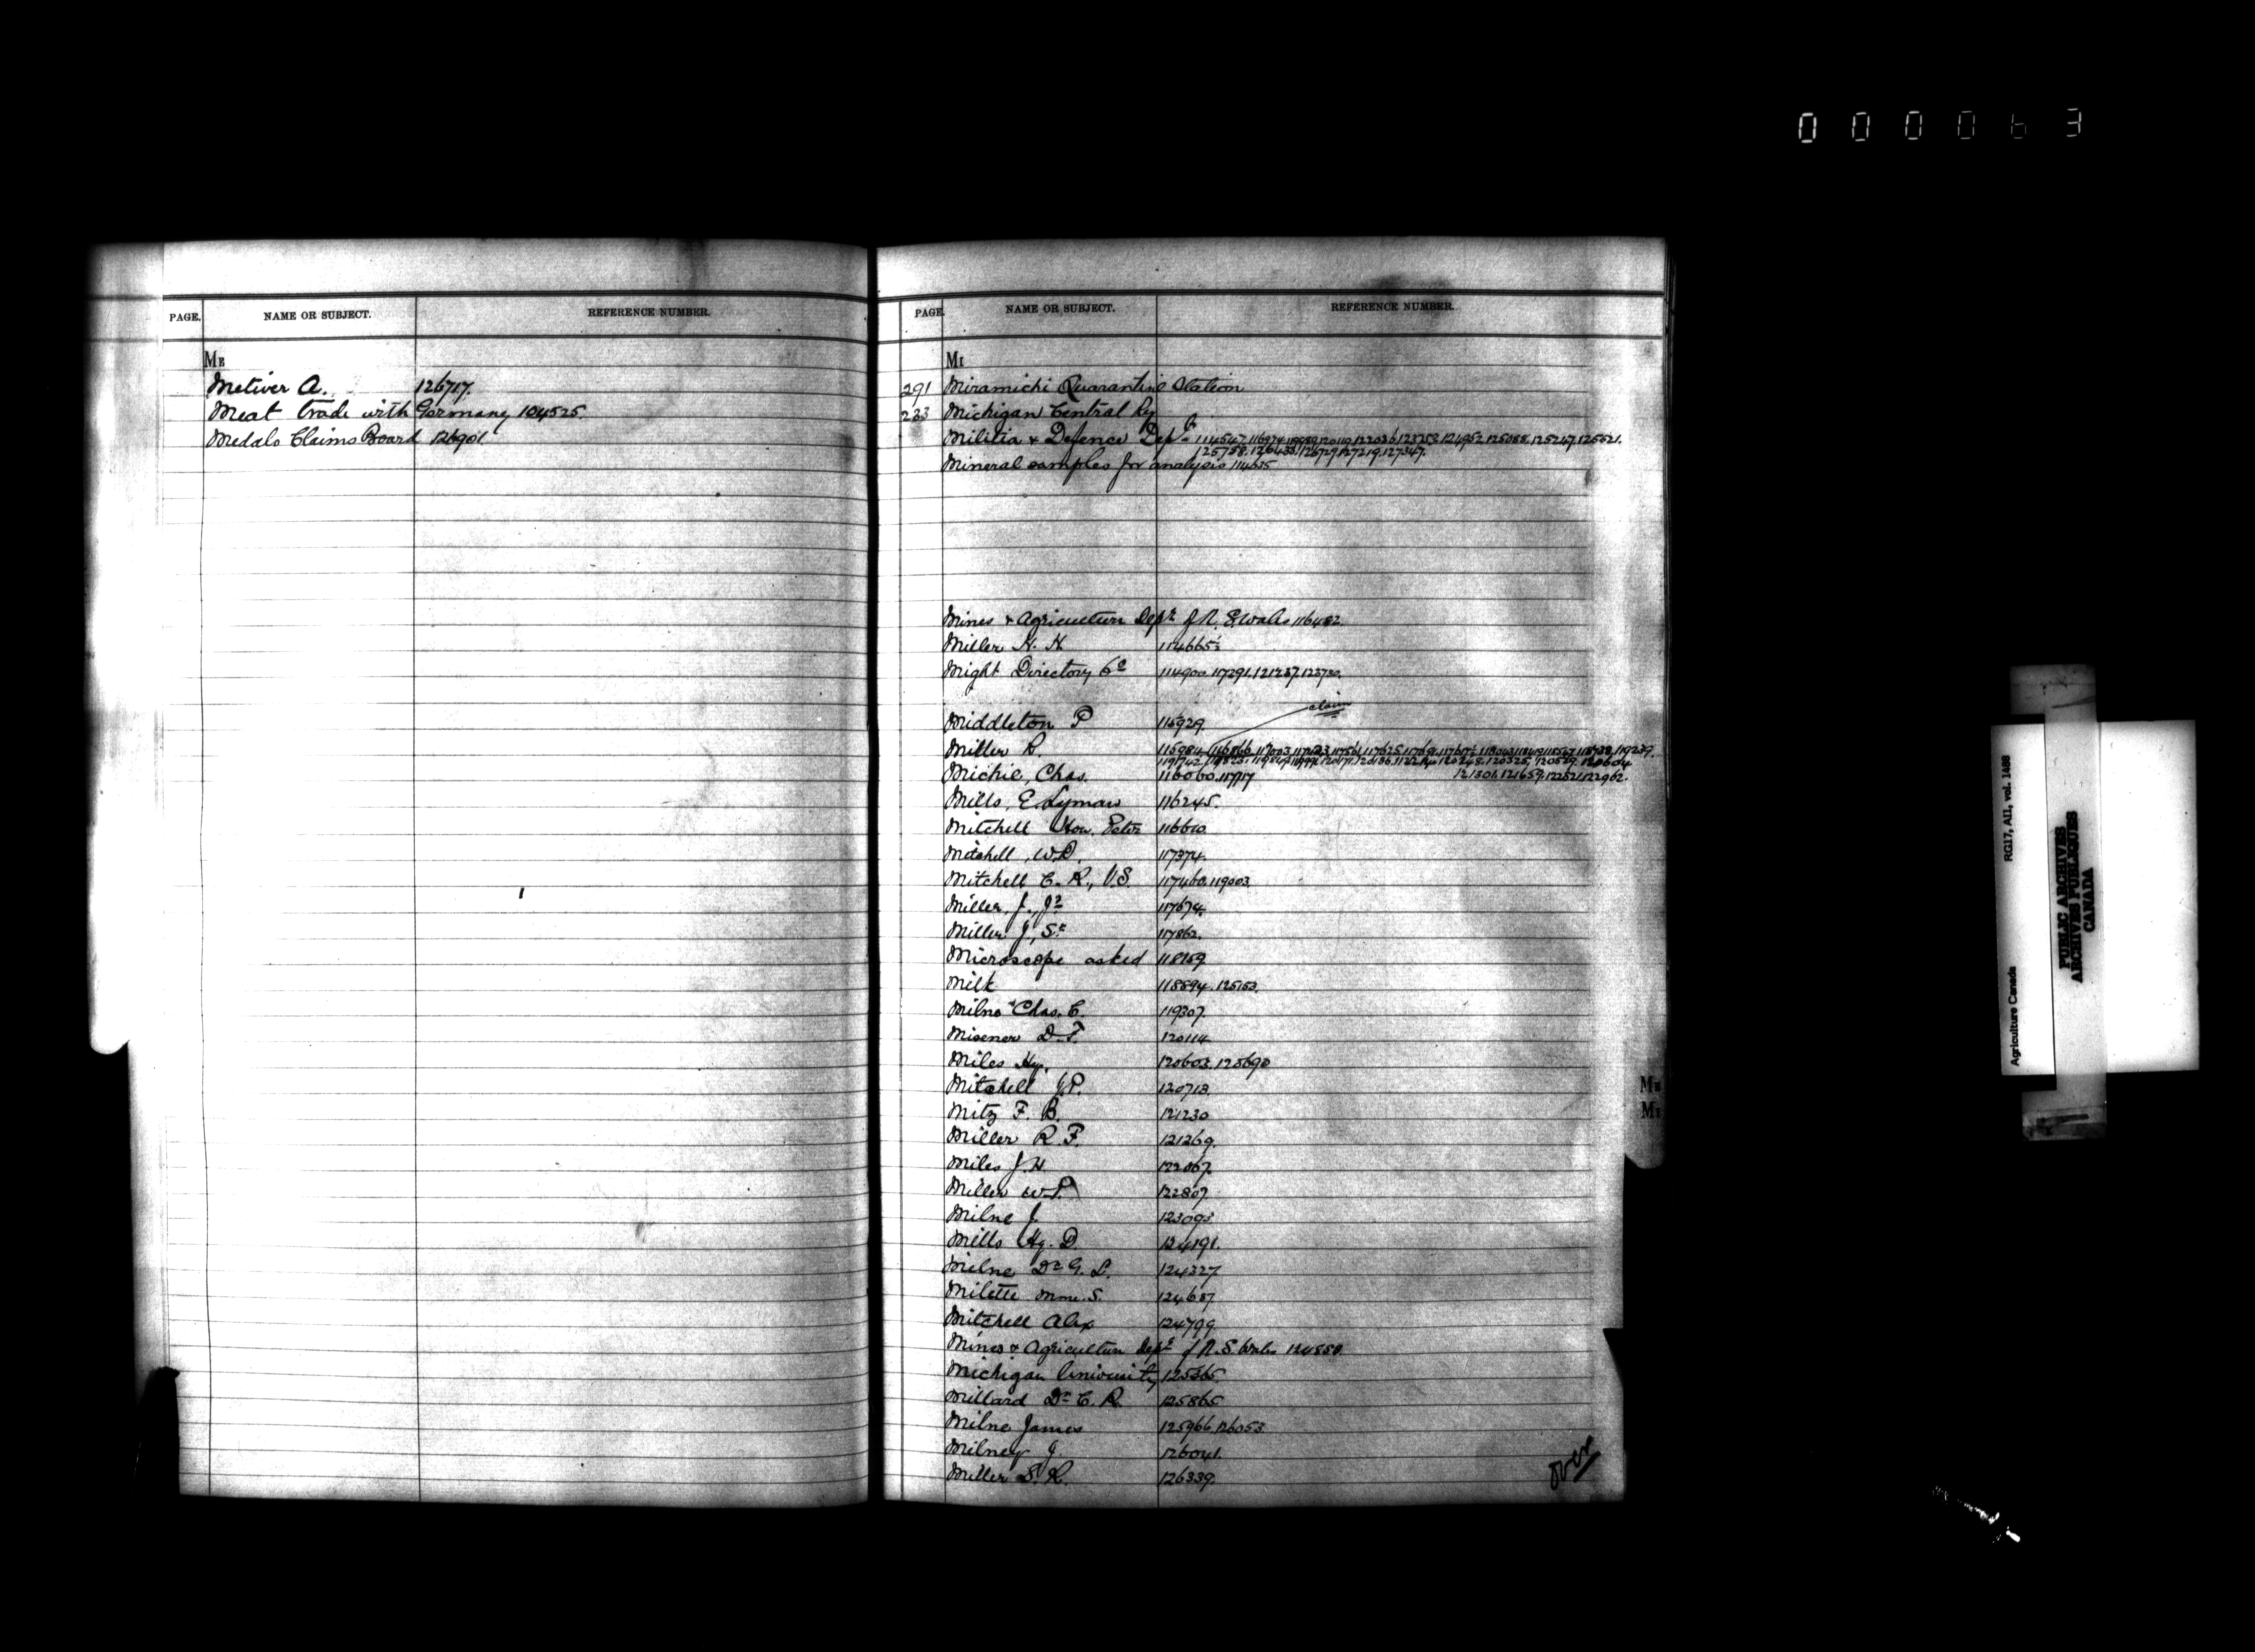 000063
PAGE. NAME OR SUBJECT. REFERENCE NUMBER.
ME
Metiver A. 126717.
Meat trade with Germany 104525.
Medals Claims Board 126901.
PAGE. NAME OR SUBJECT. REFERENCE NUMBER.
MI
291 Miramichi Quarantine Station
233 Michigan Central Ry
Militia & Defence Dept
Mineral samples for analysis
Mines & Agriculture Dept of N. S. Wales 116482.
Miller H. H. 114665½
Might Directory Co 114900. 117291. 121237. 123730.
claim
Middleton P 115929.
Miller R.
Michie, Chas. 116060. 117717
121301. 121659. 122521. 122962.
Mills, E. Lyman 116245.
Mitchell Hon. Peter 116610.
Mitchell, W.P. 117374.
Mitchell C. R., V.S. 117460. 119003.
Miller, J., Jr 117674.
Miller J, Sr 117862.
Microscope asked 118769
Milk 118894. 125153.
Milne Chas. C. 119307.
Misener D. F. 120114
Miles Hy. 120603. 120690
Mitchell J.P. 120713.
Mitz F. B. 121230
Miller R. F. 121269.
Miles J. H. 122067.
Miller W.P. 122807.
Milne J. 123093
Mills Hy. D. 124191.
Milne Dr G. L. 124327
Milette Mme. S. 124687
Mitchell Alex 124799.
Mines & Agriculture Dept of N. S. Wales 124858.
Michigan University 125365.
Millard Dr C. R. 125865
Milne James 125966. 126053
Milney J. 126041.
Miller S. R. 126339.
over
ME
MI
Agriculture Canada RG17, AII, vol. 1488
PUBLIC ARCHIVES
ARCHIVES PUBLIQUES
CANADA